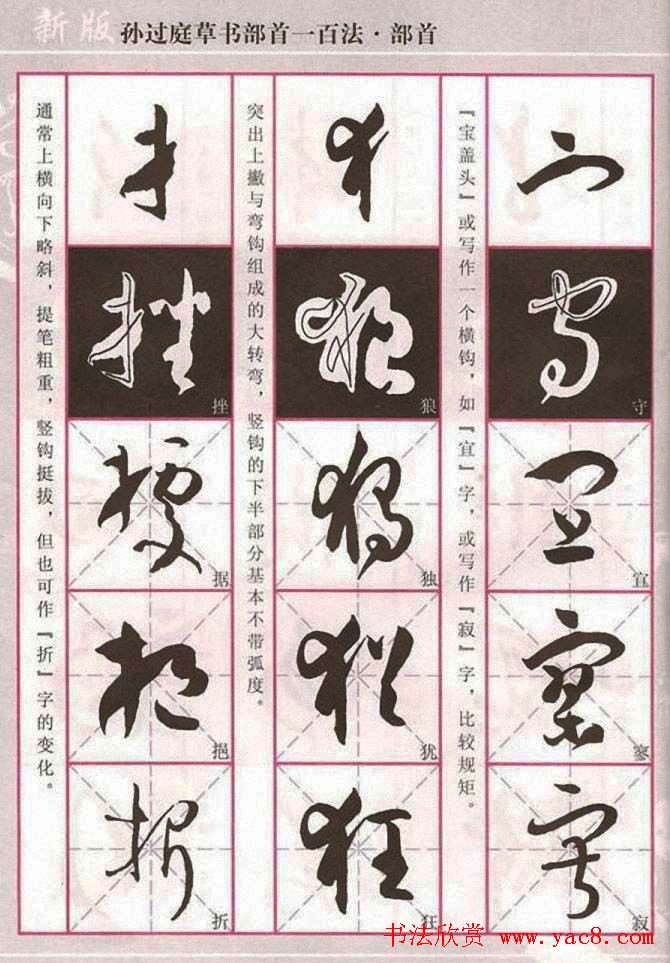 新版 孙过庭草书部首一百法·部首
『宝盖头』或写作一个横钩，如『宜』字，或写作『寂』字，比较规矩。
守
宜
寥
寂
突出上撇与弯钩组成的大转弯，竖钩的下半部分基本不带弧度。
狼
独
犹
狂
通常上横向下略斜，提笔粗重，竖钩挺拔，但也可作『折』字的变化。
挫
据
挹
折
书法欣赏 www.yac8.com